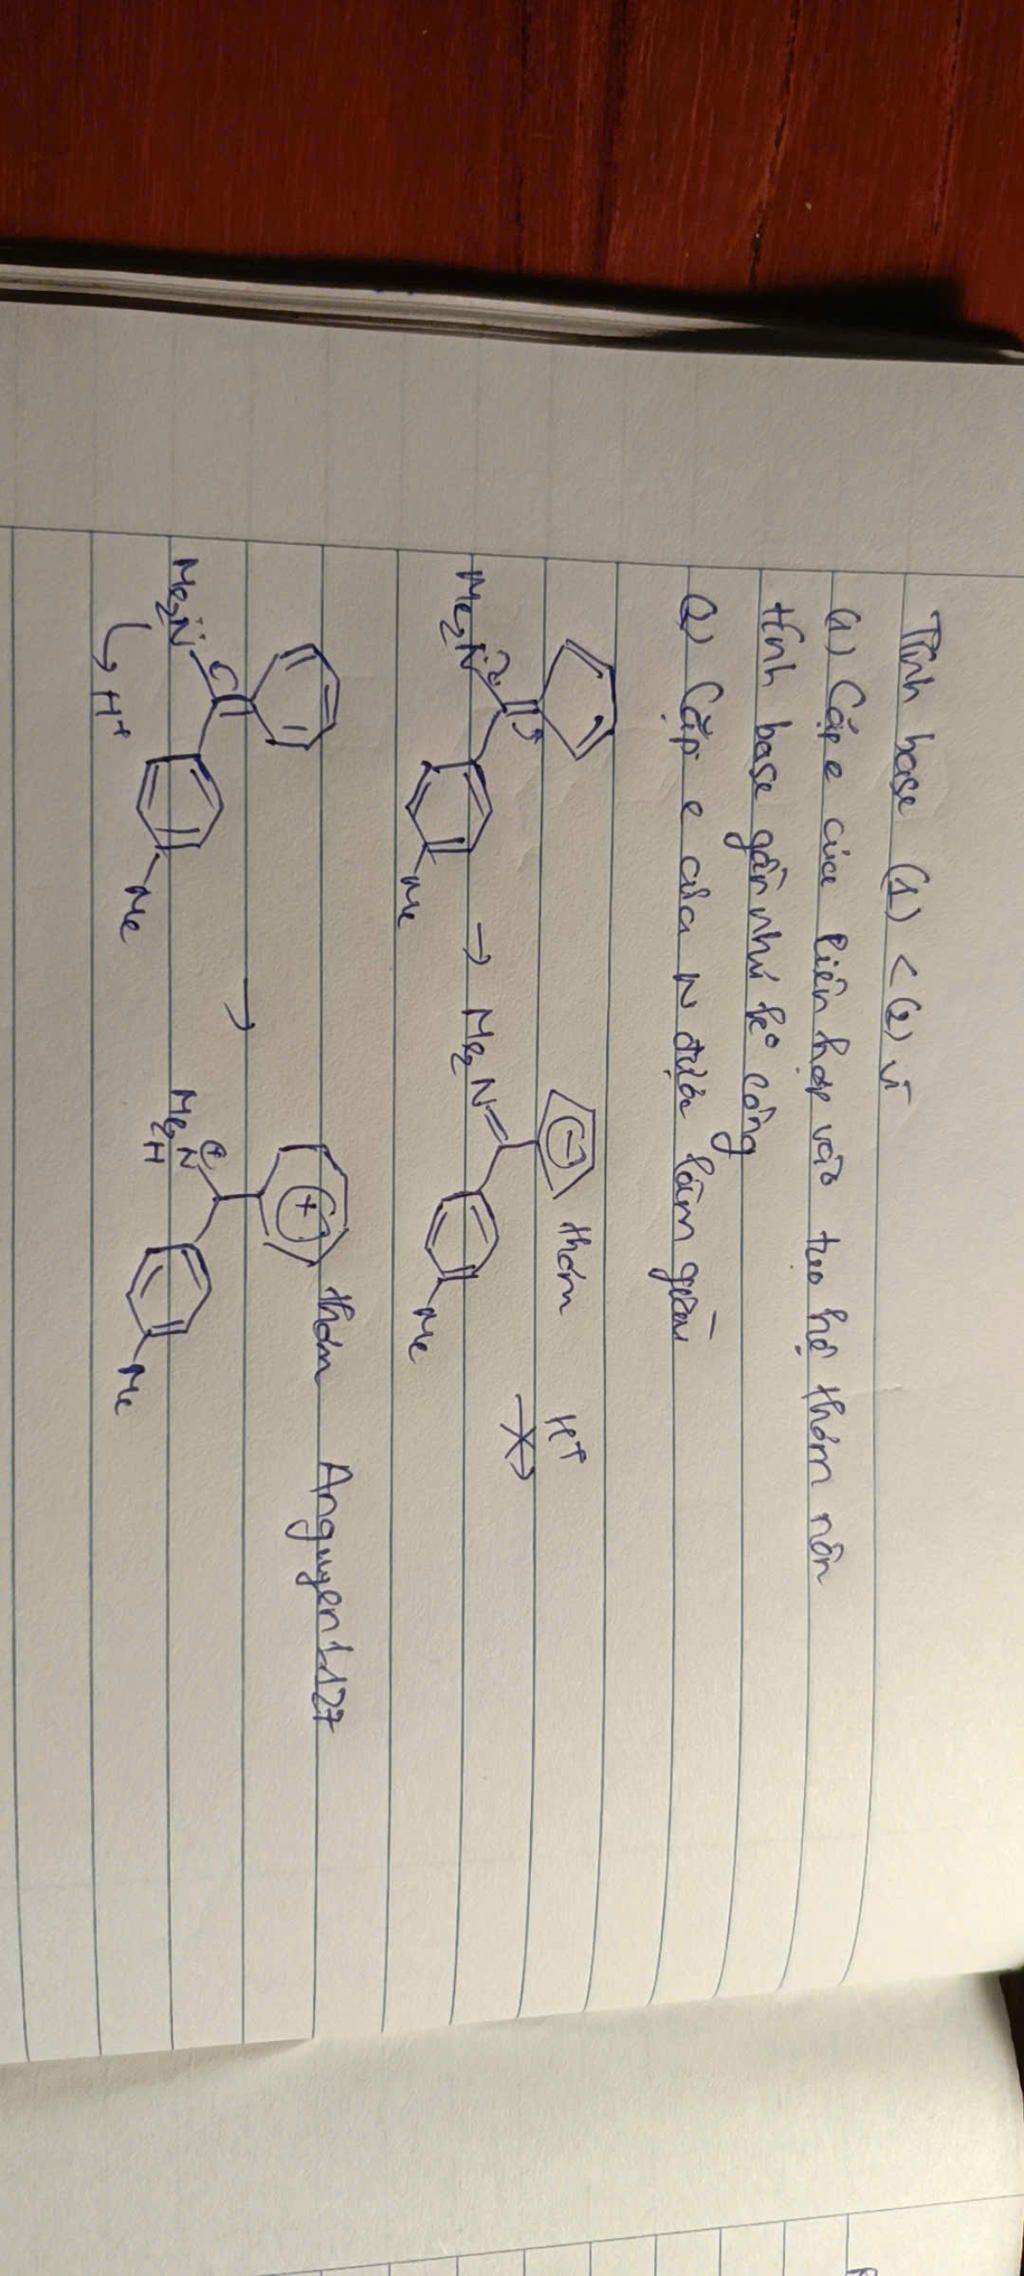 Tính base (1) < (2) vì
(1) Cặp e của liên hợp vào tạo hệ thơm nên
tính base gần như ko còng
(2) Cặp e của N được làm giàu
Me2N: Me → Me2N (-) thơm H+
Me
Me2N: Me → Me2N + thơm Anguyen1127
H+ H Me